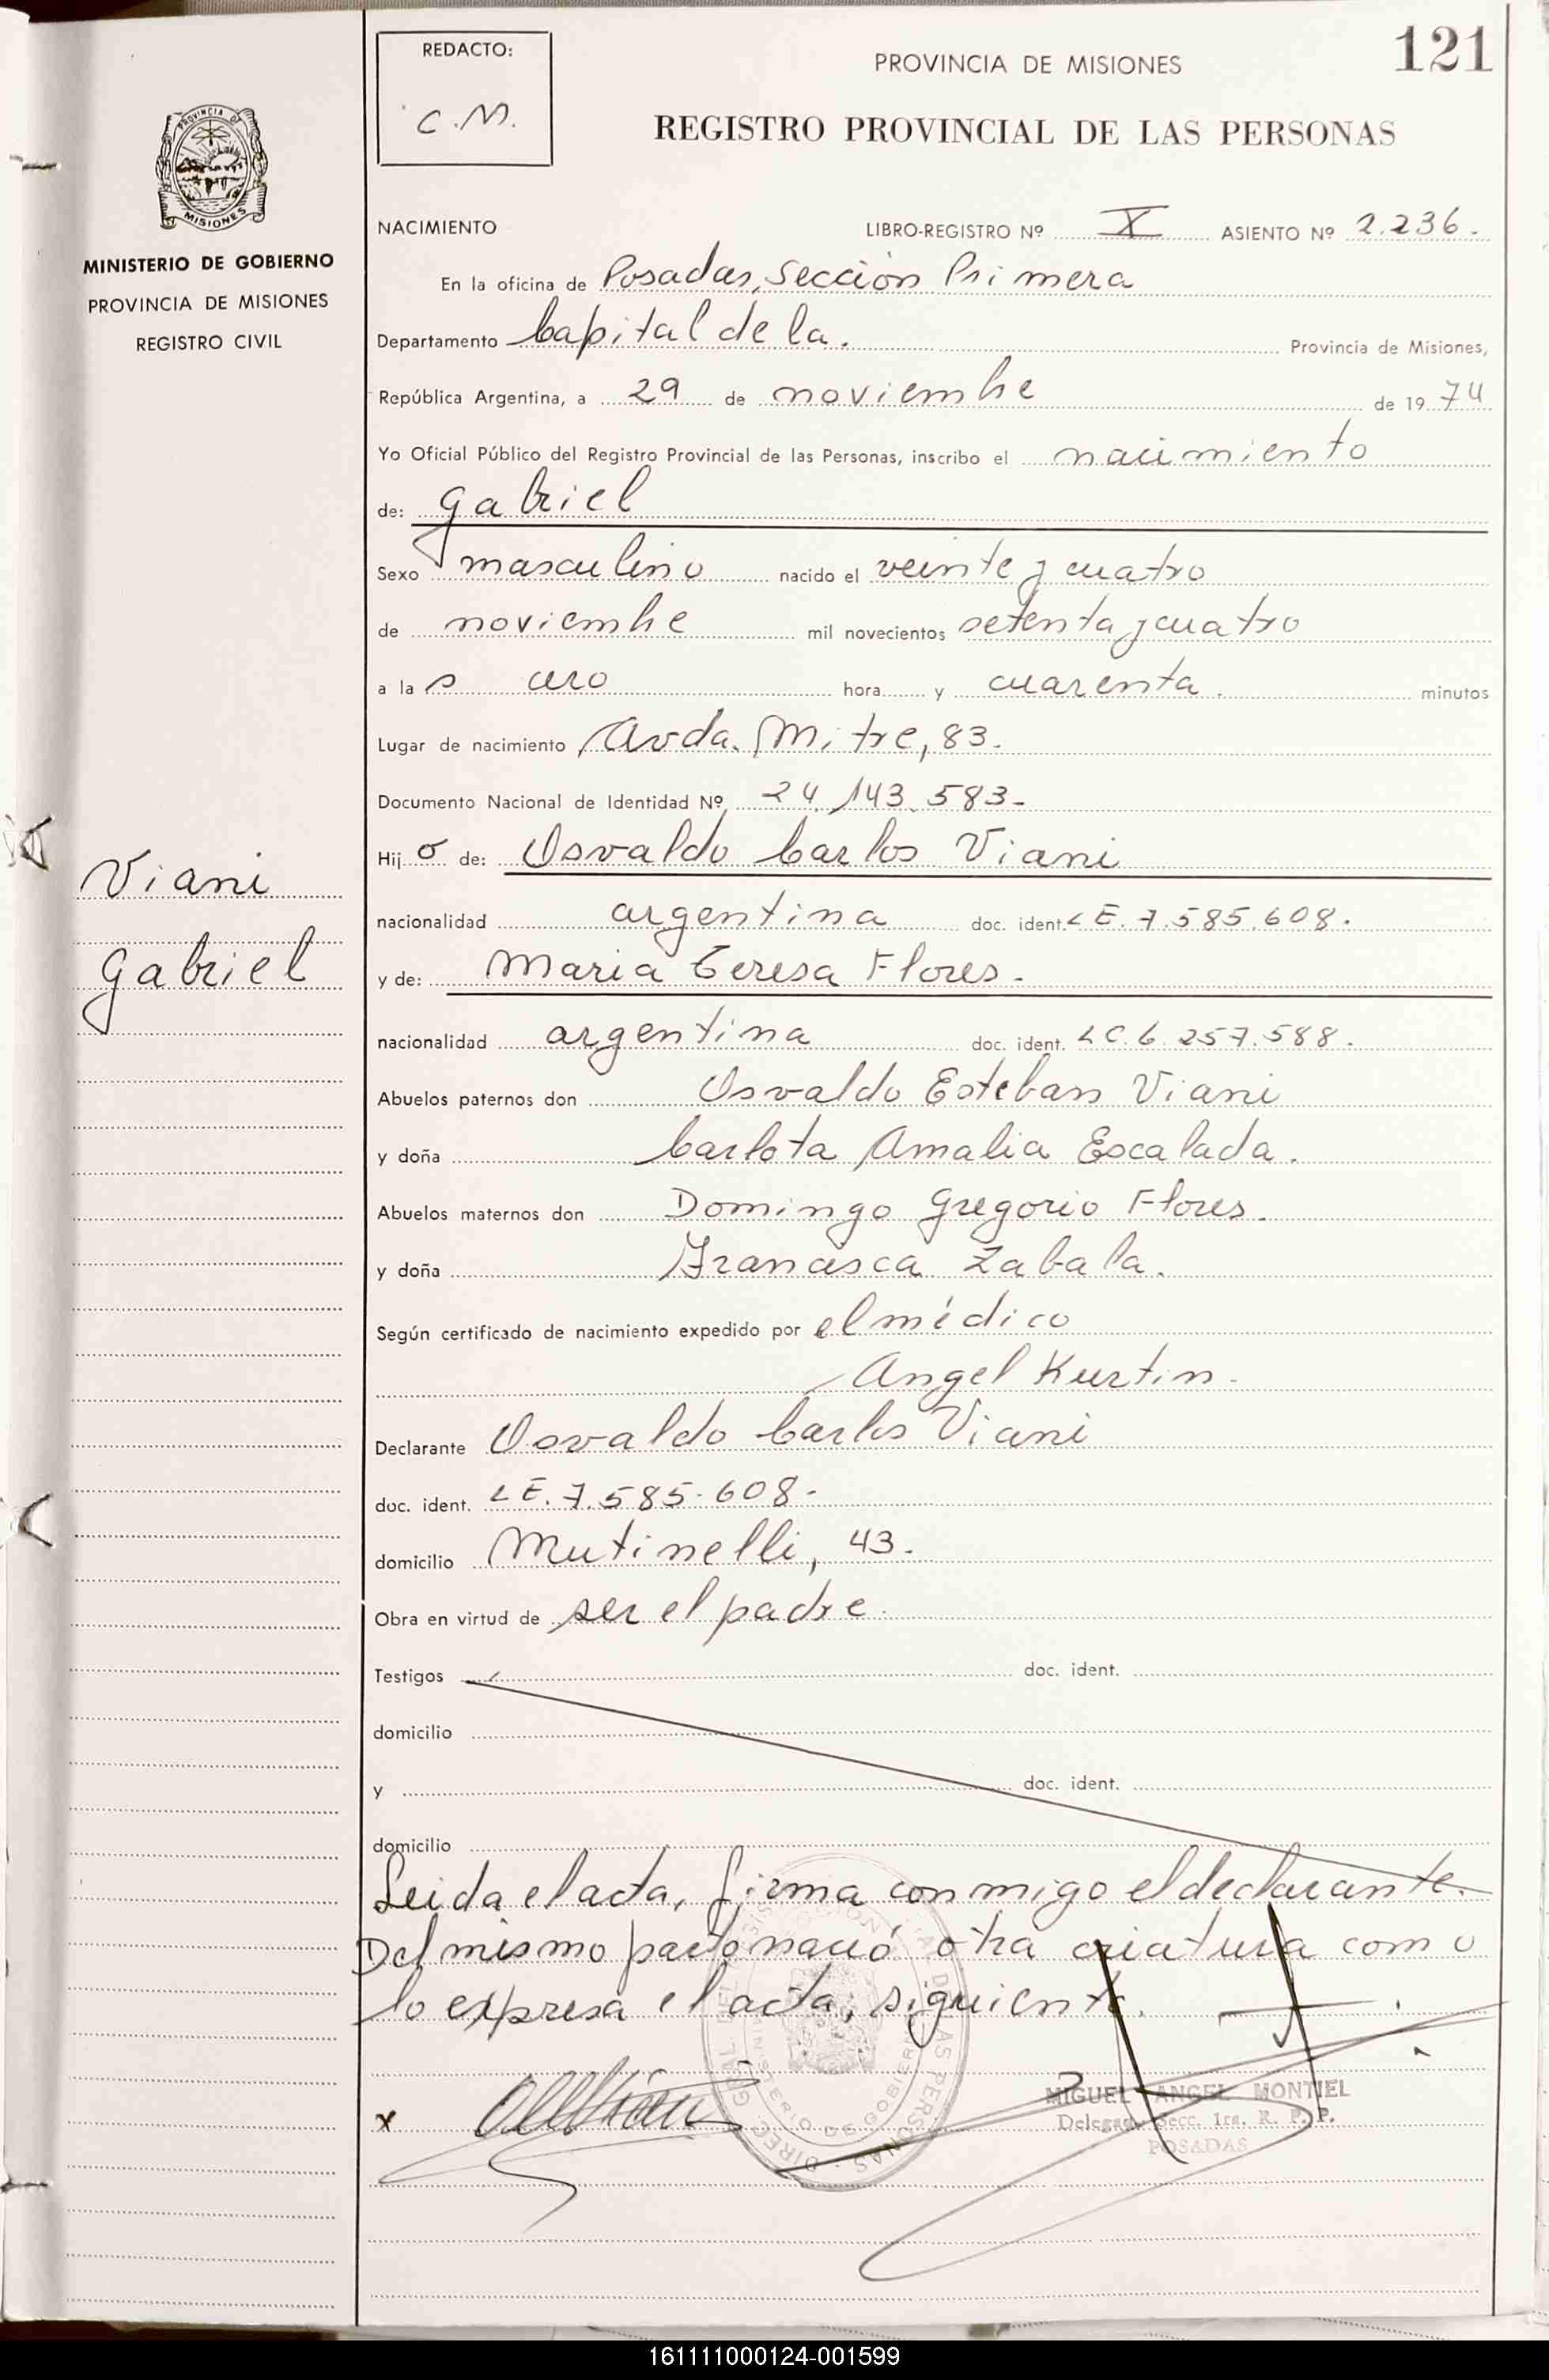 121
REDACTO:
C.M.
PROVINCIA DE MISIONES
REGISTRO PROVINCIAL DE LAS PERSONAS
PROVINCIA DE
MISIONES
MINISTERIO DE GOBIERNO
PROVINCIA DE MISIONES
REGISTRO CIVIL
NACIMIENTO LIBRO-REGISTRO Nº X ASIENTO Nº 2.236.
En la oficina de Posadas, Sección Primera
Departamento Capital de la. Provincia de Misiones,
República Argentina, a 29 de noviembre de 1974
Yo Oficial Público del Registro Provincial de las Personas, inscribo el nacimiento
de: Gabriel
Sexo masculino nacido el veinte y cuatro
de noviembre mil novecientos setenta y cuatro
a la s cero hora y cuarenta. minutos
Lugar de nacimiento Avda. Mitre, 83.
Documento Nacional de Identidad Nº 24.143.583-
Viani
Gabriel
Hij o de: Osvaldo Carlos Viani
nacionalidad argentina doc. ident. LE. 7.585.608.
y de: Maria Teresa Flores.
nacionalidad argentina doc. ident. LC. 6.257.588.
Abuelos paternos don Osvaldo Esteban Viani
y doña Carlota Amalia Escalada.
Abuelos maternos don Domingo Gregorio Flores.
y doña Francisca Zabala.
Según certificado de nacimiento expedido por el médico
Angel Kurtin.
Declarante Osvaldo Carlos Viani
doc. ident. LE. 7.585.608.
domicilio Mutinelli, 43.
Obra en virtud de ser el padre.
Testigos doc. ident.
domicilio
y doc. ident.
domicilio
Leida el acta, firma conmigo el declarante.
Del mismo parto nació otra criatura como
lo expresa el acta, siguiente.
x
MIGUEL ANGEL MONTIEL
Delegado Secc. 1ra. R. P. P.
POSADAS
161111000124-001599